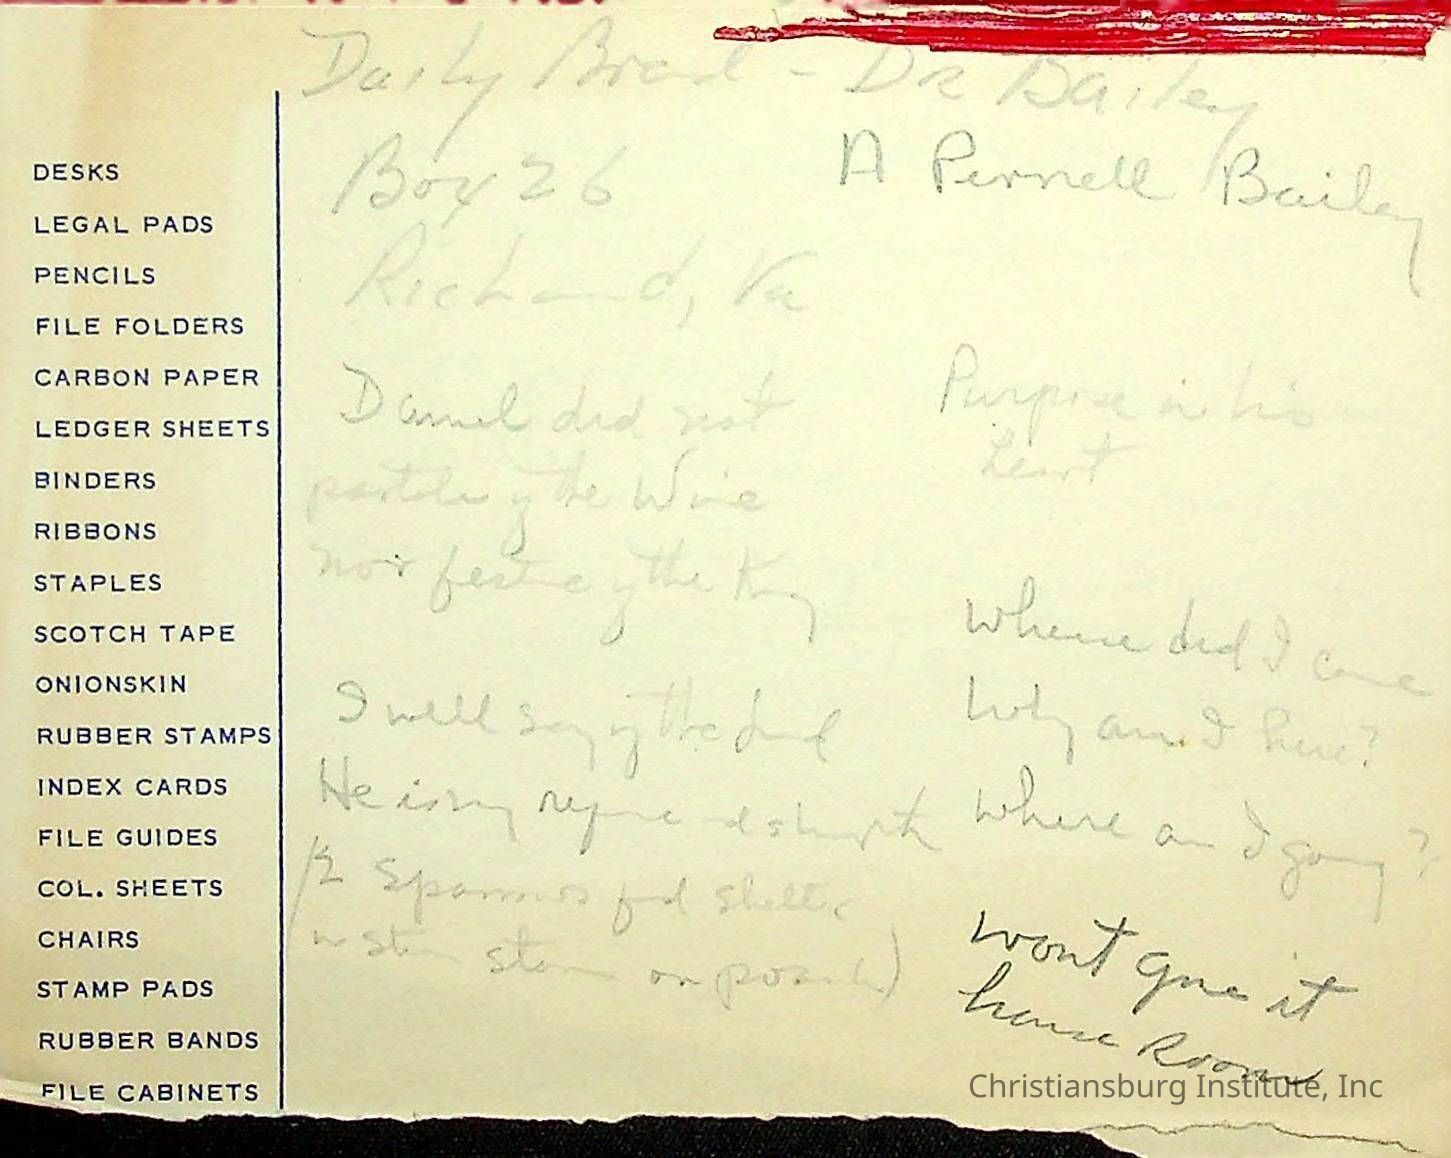 Daily Bread - Dr Bailey
Box 26
Richmond, Va
A Pernell Bailey
DESKS
LEGAL PADS
PENCILS
FILE FOLDERS
CARBON PAPER
LEDGER SHEETS
BINDERS
RIBBONS
STAPLES
SCOTCH TAPE
ONIONSKIN
RUBBER STAMPS
INDEX CARDS
FILE GUIDES
COL. SHEETS
CHAIRS
STAMP PADS
RUBBER BANDS
FILE CABINETS
Daniel did not
partake of the Wine
nor feast of the King
I will say of the Lord
He is my refuge and strength
Sparrows find shelter
in storm on porch)
Purpose in his
heart
Whence did I come
Why am I here?
Where am I going?
wont give it
house Room
Christiansburg Institute, Inc